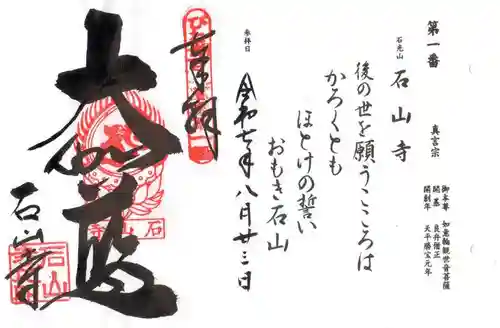 第一番
石光山
石山寺
真言宗
御本尊 如意輪観世音菩薩
開基 良弁僧正
開創年 天平勝宝元年
後の世を願うこころは
かろくとも
ほとけの誓い
おもき石山
参拝日
令和七年八月廿三日
奉拝
大伽藍
石山寺
石山寺